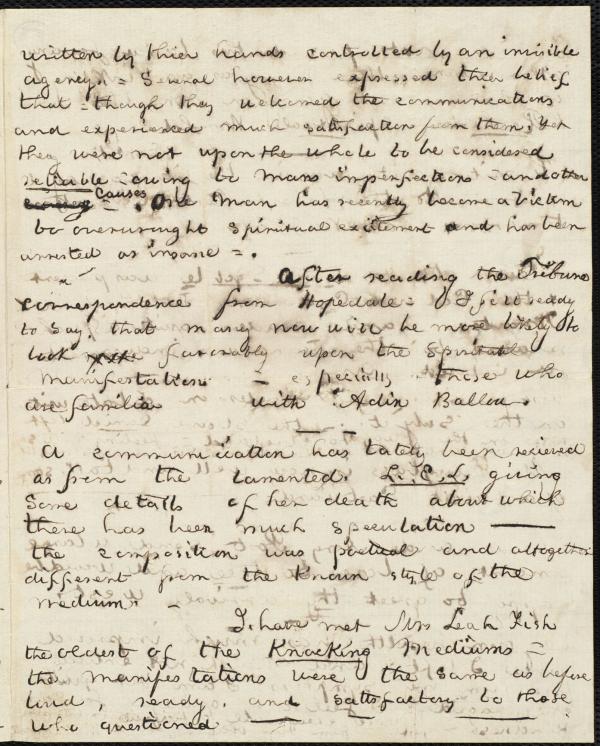 written by thier hands controlled by an invisible
agency. = Several however expressed thier belief
that = though they welcomed the communications
and experienced much satisfaction from them, yet
they were not upon the whole to be considered
reliable = owing to mans imperfections = and other
causes = . One man has recently become a victim
to overwrought spiritual excitement and has been
arrested as insane = .
After reading the Tribune
correspondence from Hopedale = I felt ready
to say, that many now will be more likely to
look favorably upon the spiritual
manifestations = especially those who
are familiar with Adin Ballou.
A communication has lately been recieved
as from the lamented L. E. L. giving
some details of her death about which
there has been much speculation —
the composition was poetical and altogether
different from the known style of the
medium. -
I have met Mrs Leah Fish
the oldest of the Knocking Mediums =
the manifestations were the same as before
loud, ready, and satisfactory to those
who questioned —